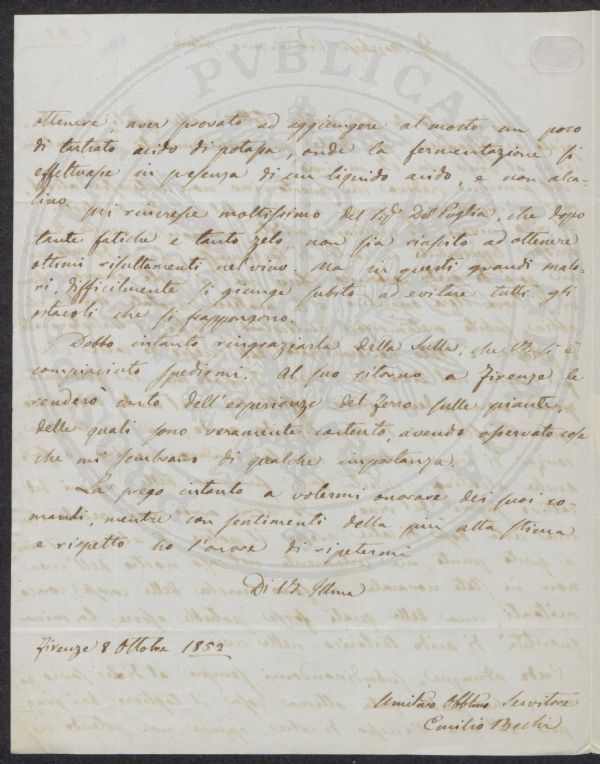 ottenere, aver provato ad aggiungere al mosto un poco
di tartrato acido di potassa, onde la fermentazione si
effettuasse in presenza di un liquido acido, e non alca-
lino. Mi rincresce moltissimo del Sigr. Del Puglia, che dopo
tante fatiche e tanto zelo non sia riuscito ad ottenere
ottimi risultamenti nel vino. Ma in questi grandi malo-
ri, difficilmente si giunge subito ad evitare tutti gli
ostacoli che si frappongono.
Debbo intanto ringraziarla della Sulla, che V.S. si è
compiaciuto spedirmi. Al suo ritorno a Firenze le
renderò conto dell'esperienze del ferro sulle piante,
delle quali sono veramente contento, avendo osservato cose
che mi sembrano di qualche importanza.
La prego intanto a volermi onorare dei suoi co
mandi, mentre con sentimenti della più alta stima
e rispetto ho l'onore di ripetermi
Di V.S. Illma
Firenze 8 Ottobre 1852
Umilisso Obblmo Servitore
Emilio Bechi
PVBLICA